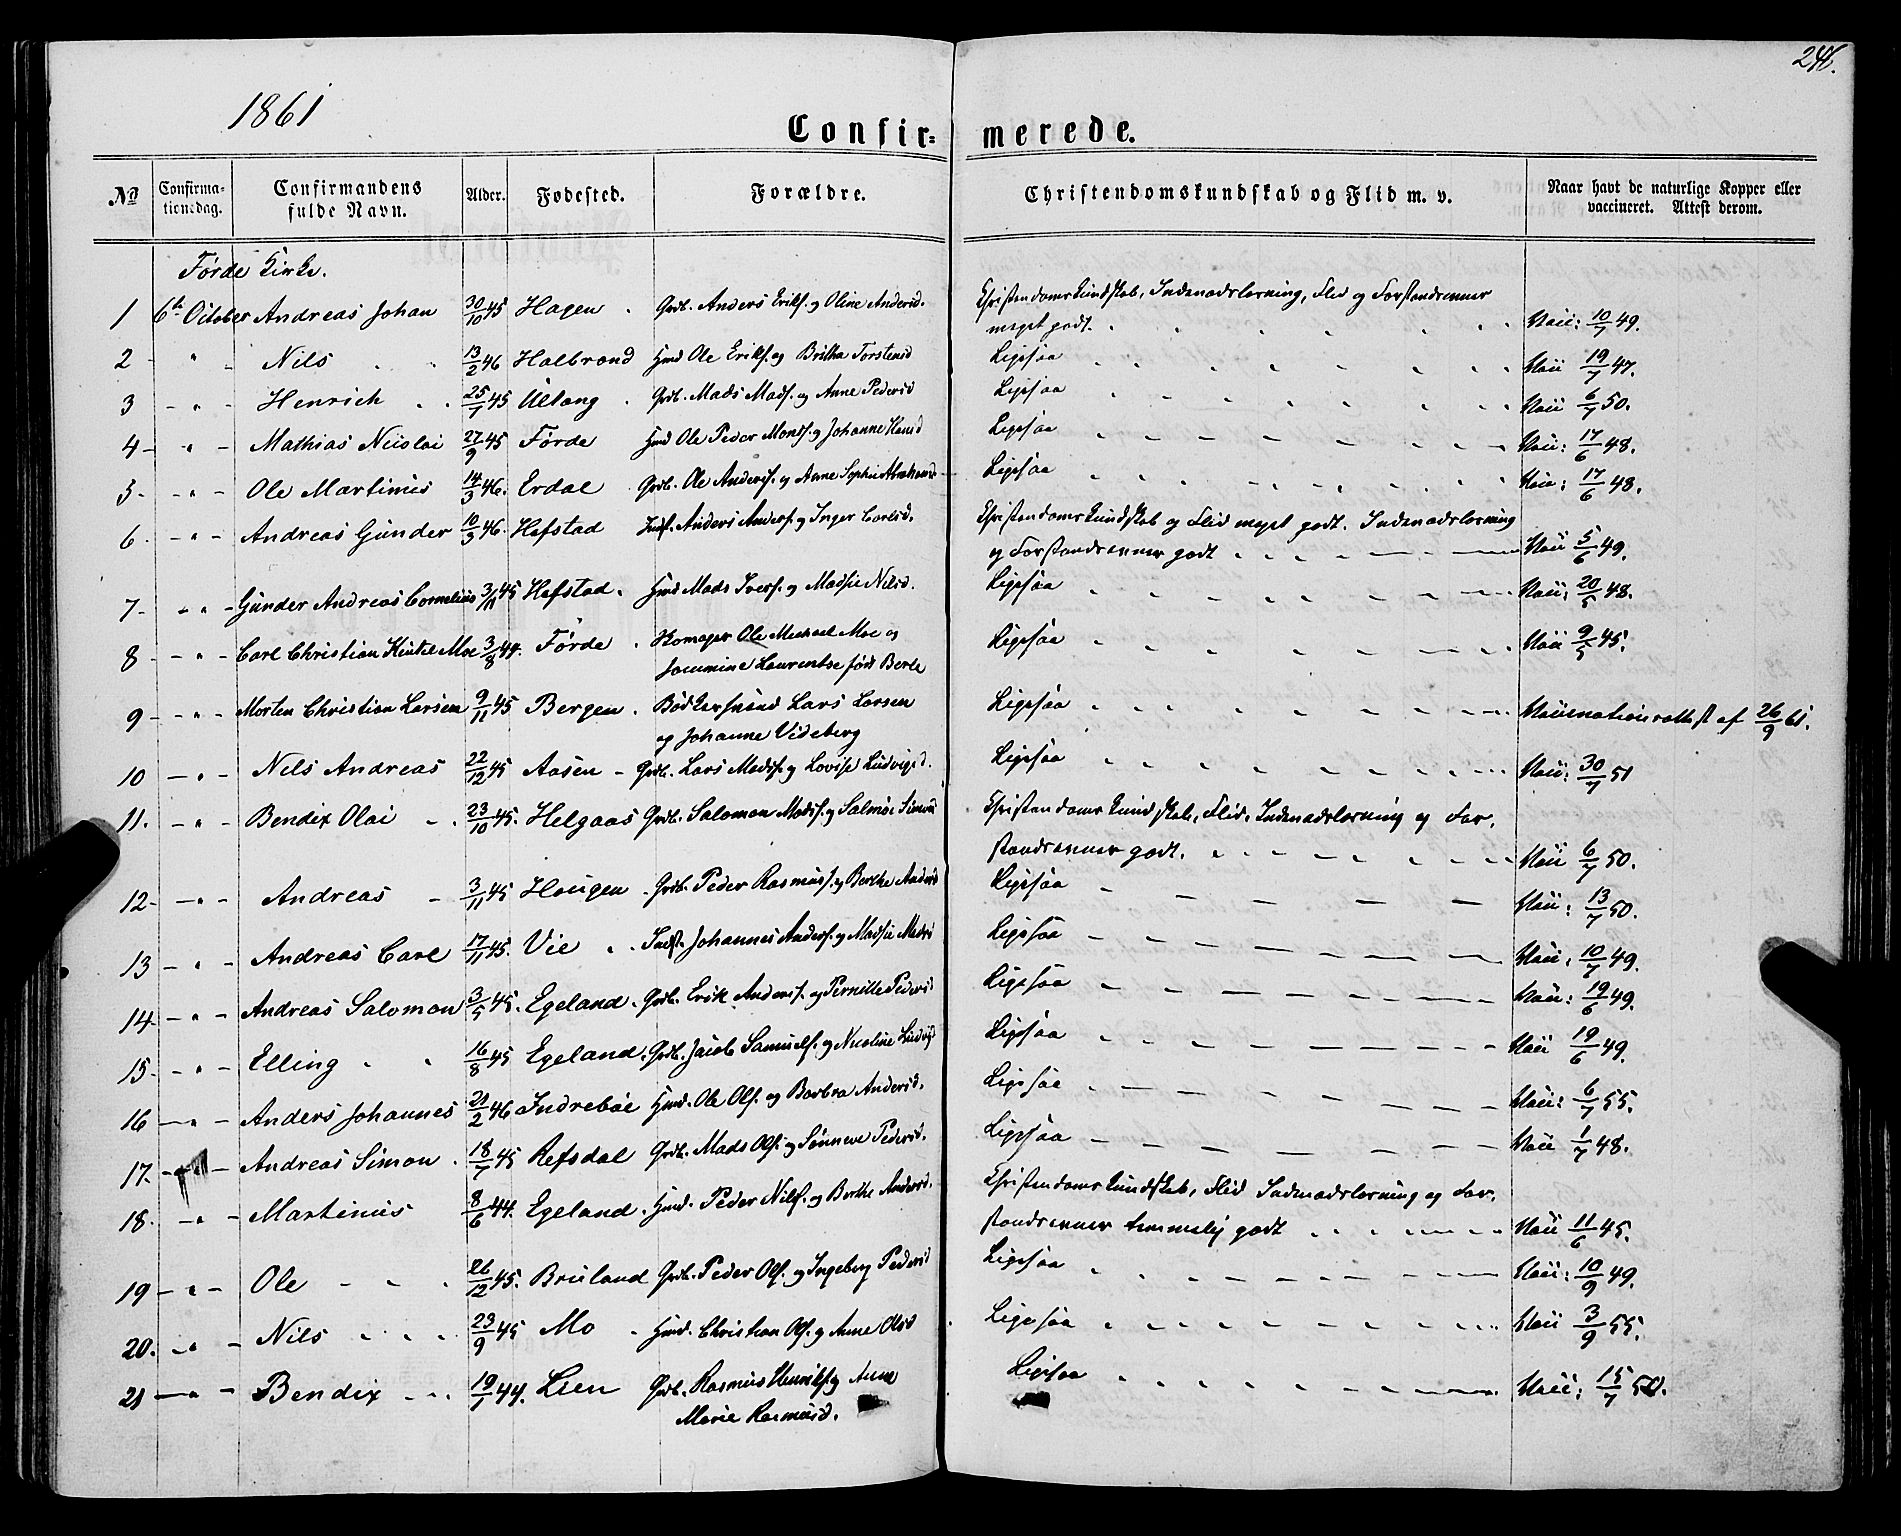 246.
1861
Confirmerede.
No Confirmationsdag. Confirmandens fulde Navn. Alder. Fødested. Forældre. Christendomskundskab og Flid m. v. Naar havt de naturlige Kopper eller vaccineret. Attest derom.
Førde Kirke.
1 6te October Andreas Johan 30/10 45 Hagen Grdb. Anders Eriks. og Oline Andersd. Christendomskundskab, Indenadslæsning, Flid og Forstandsevner meget godt. Vacc: 10/7 49.
2 - " - Nils 13/2 46 Halbrand Hmd Ole Eriks. og Britha Torstensd Ligesaa Vacc 19/7 47.
3 - " - Henrich 25/7 45 Ullang Grdb. Mads Mads. og Anne Pedersd Ligesaa Vacc 6/7 50.
4 - " - Mathias Nicolai 27/9 45 Førde Hmd Ole Peder Monss. og Johanne Hansd Ligesaa Vacc: 17/6 48.
5. - " - Ole Martinus 14/3 46. Erdal Grdb. Ole Anders. og Anne Sophie Ligesaa Vacc: 17/6 48.
6. - " - Andreas Gunder 10/3 46. Hafstad Indst. Anders Anders. og Inger Carlsd. Christendomskundskab og Flid meget godt. Indenadslæsning og Forstandsevner godt Vacc 5/6 49.
7- - " - Gunder Andreas Cornelius 3/11 45 Hafstad. Hmd Mads Ivers. og Madsie Nilsd. Ligesaa Vacc: 20/5 48.
8 - " - Carl Christian Moe 3/8 44. Førde Skomager Ole Michael Moe og Jommine Laurentse født Berle Ligesaa Vacc 9/5 45.
9 - " - Morten Christian Larsen 9/11 45 Bergen. Bødkersvend Lars Larsen og Johanne Videberg Ligesaa Vaccinationsattest af 26/9 61.
10 - " - Nils Andreas 22/12 45 Aasen - Grdb. Lars Mads. og Lovise Ludvigsd. Ligesaa Vacc: 30/7 51
11. - " - Bendix Olai 23/10 45. Helgaas Grdb. Salomon Mads. og Salmøe Simonsd Christendomskundskab, Flid, Indenadslæsning og Forstandsevner godt. Vacc 6/7 50.
12- - " - Andreas 3/11 45 Hougen Grdb. Peder Rasmuss. og Berthe Andersd Ligesaa Vacc: 13/7 50.
13 - " - Andreas Carl 17/11 45. Vie Indst. Johannes Anders. og Madsie Madsd Ligesaa Vacc. 10/7 49.
14 - " - Andreas Salomon 3/5 45. Egeland. Grdb. Erik Anders. og Pernille Pedersd Ligesaa Vacc: 19/6 49.
15. - " - Elling 16/8 45 Egeland. Grdb. Jacob Samuels. og Nicoline Ludvigsd Ligesaa Vacc 19/6 49.
16 - " - Anders Johannes 21/2 46 Indrebøe Hmd. Ole Ols. og Barbra Andersd. Ligesaa Vacc: 6/7 55.
17. - " - Andreas Simon 18/7 45 Refsdal Grdb. Mads Ols. og Sønneve Pedersd. Ligesaa Vacc 1/7 48.
18. - " - Martinus 8/6 44. Egeland. Hmd. Peder Nils. og Berthe Andersd. Christendomskundskab, Flid Indenadslæsning og Forstandsevner temmelig godt Vacc 11/6 45.
19 - " - Ole 26/12 45. Bruland Grdb. Peder Ols. og Ingeborg Pedersd Ligesaa Vacc: 10/9 49.
20. - " - Nils 23/9 45 Mo Hmd. Christian Ols. og Anne Olsd Ligesaa Vacc 3/9 55.
21 - " - Bendix 19/1 44. Lien Grdb. Rasmus Henriks. og Anne Marie Rasmusd. Ligesaa Vacc: 15/7 50.